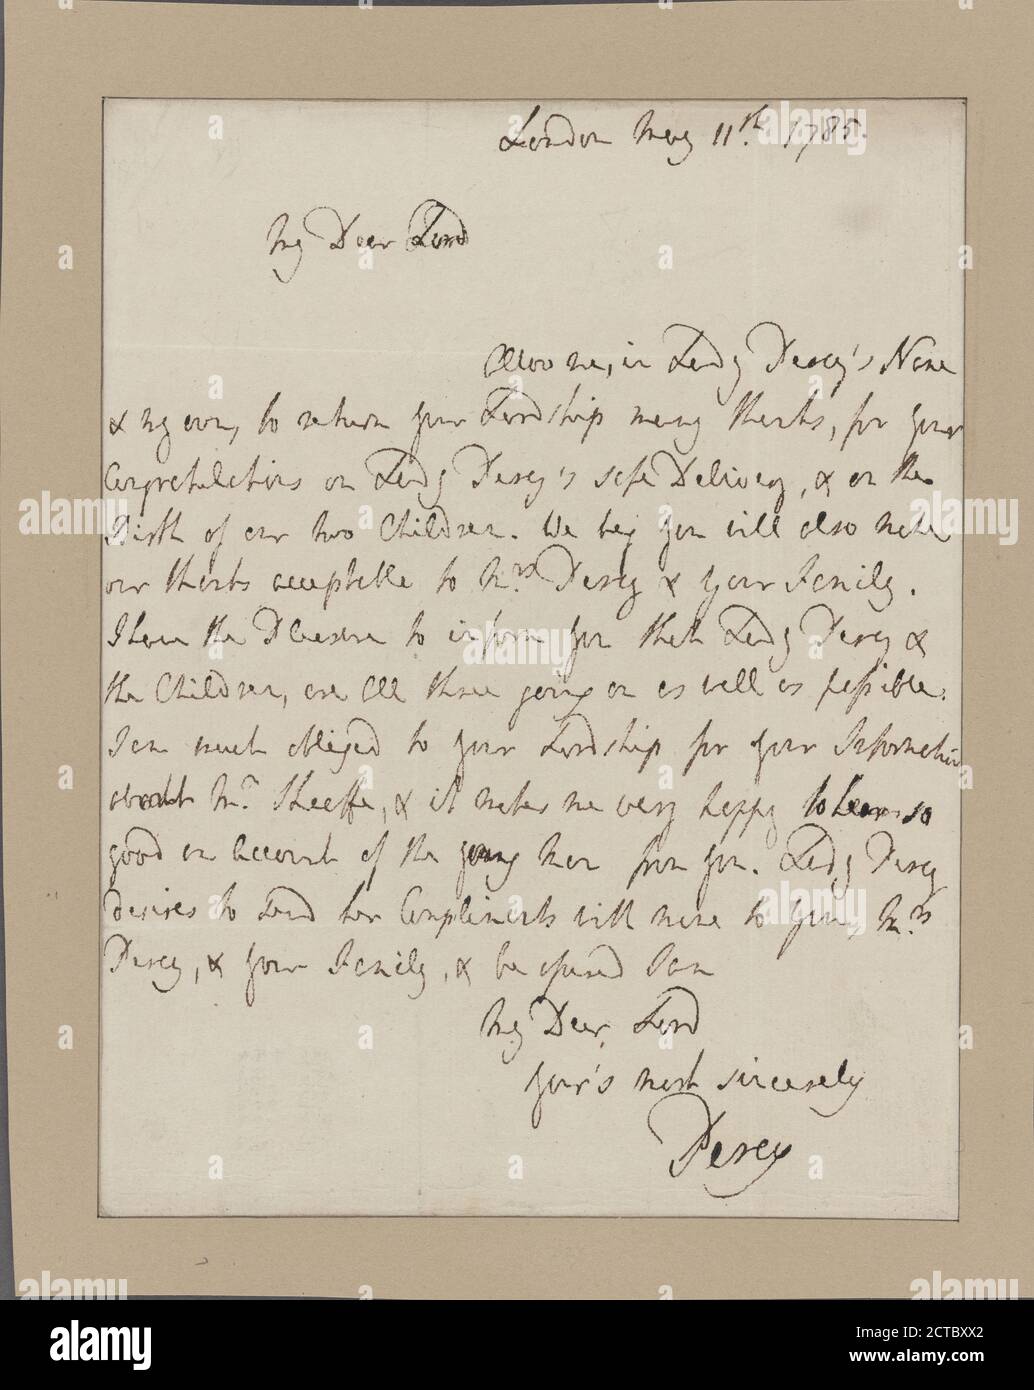 London May 11th. 1785.
My Dear Lord
Allow me, in Lady Percy's Name
& my own, to return your Lordship many thanks, for your
Congratulations on Lady Percy's safe Delivery, & on the
Birth of our two Children. We beg you will also make
our thanks acceptable to Mrs. Percy & your Family.
I have the Pleasure to inform you that Lady Percy &
the Children, are all three going on as well as possible.
I am much obliged to your Lordship for your Information
about Mr. Sheaffe, & it makes me very happy to hear so
good an Account of the young Man from you. Lady Percy
desires to send her Compliments with mine to you, Mrs.
Percy, & your Family, & be assured I am
My Dear Lord
Your's most sincerely
Percy
alamy
Image ID: 2CTBXX2
www.alamy.com